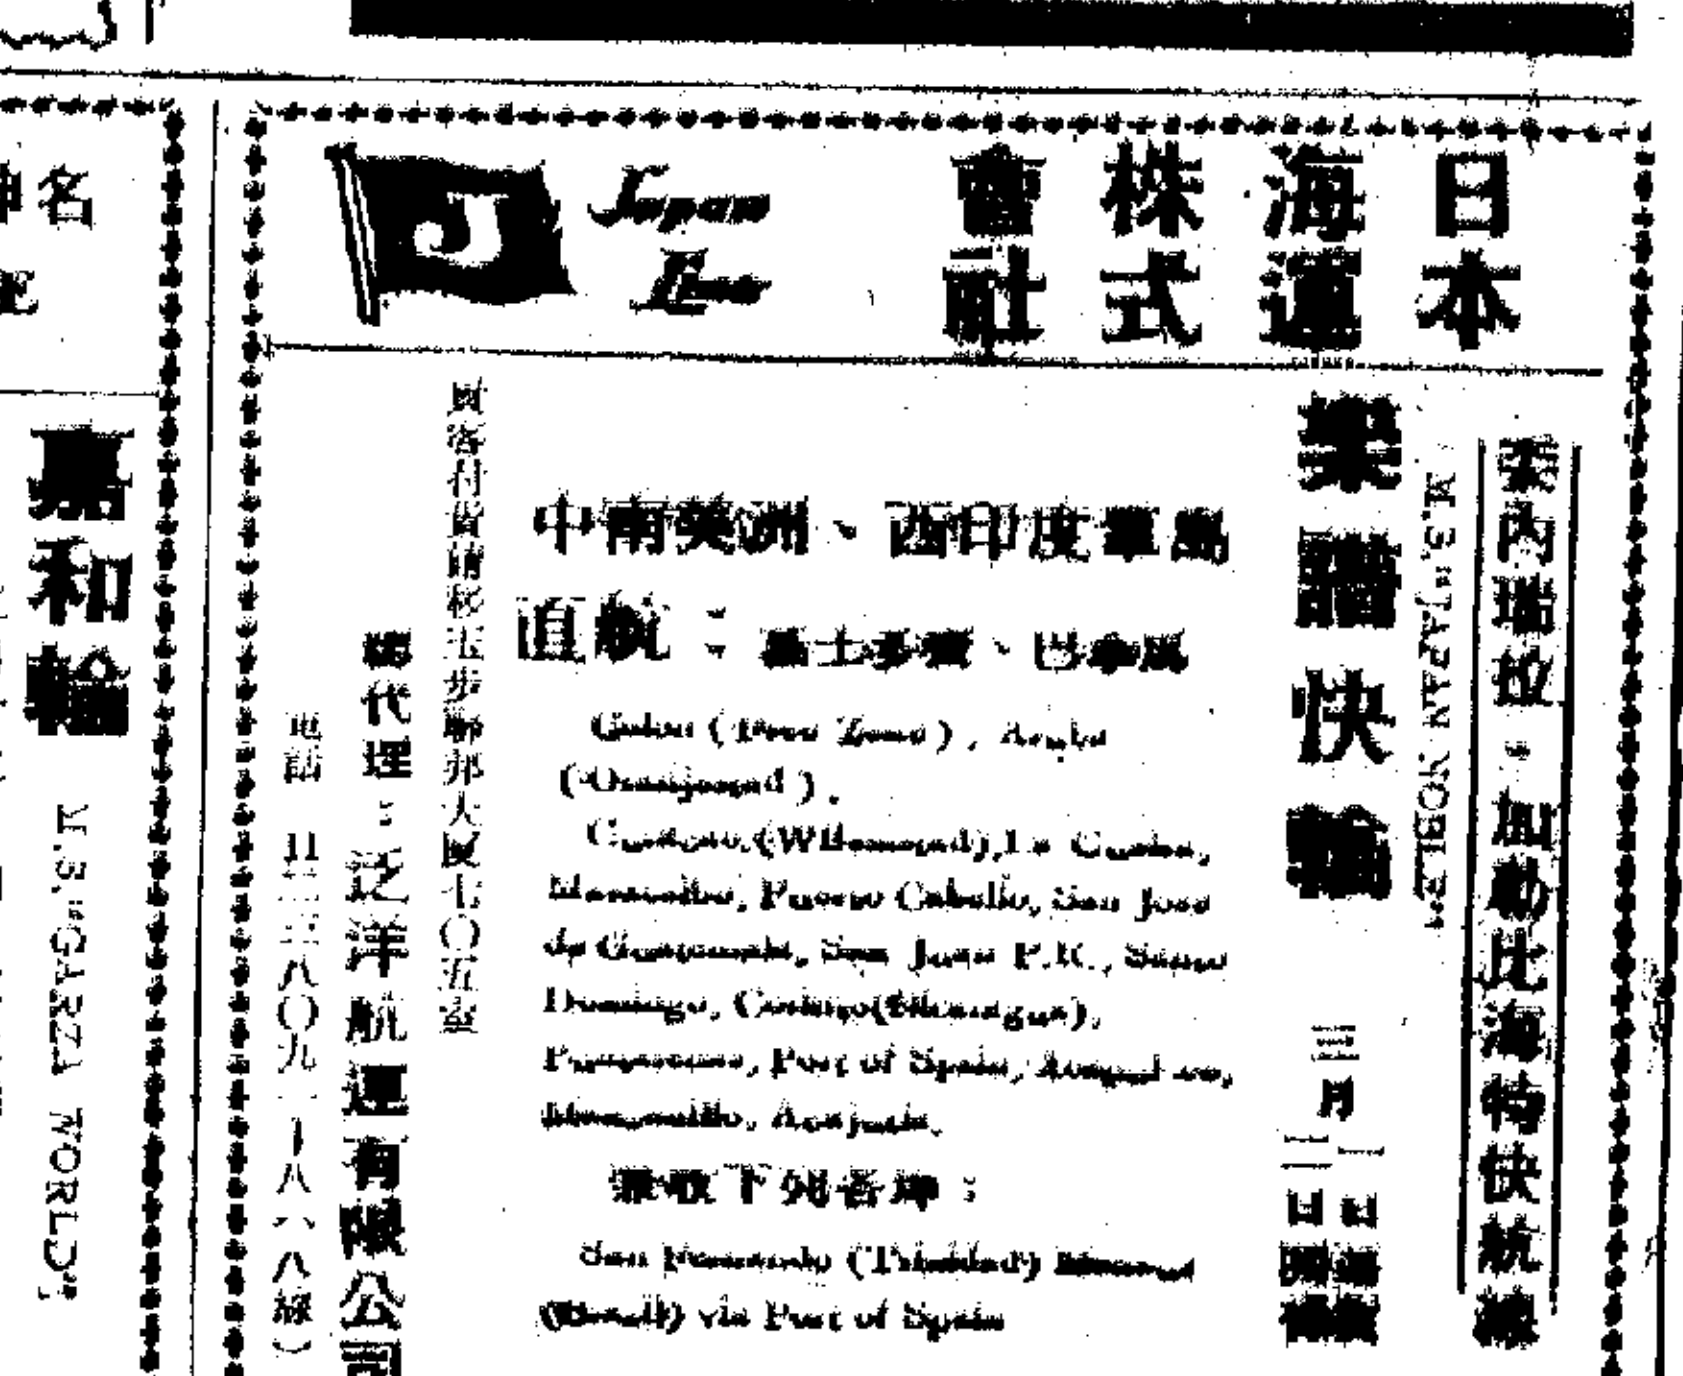 日本
海運
株式
會社
Japan
Line
委內瑞拉‧加勒比海特快航線
M.S. "JAPAN NOBLE"
樂譜快輪
三月
中南美洲、西印度羣島
直航：基士多寶、巴拿馬
Colon (Free Zone), Aruba
(Oranjestad).
Curacao,(Willemstad),La Guaira,
Maracaibo, Puerto Cabello, San Jose
de Guatemala, San Juan P.R., Santo
Domingo, Corinto(Nicaragua),
Puntarenas, Port of Spain,
Manzanillo, Acajutla.
兼收下列各埠：
San Fernando (Trinidad)
(Brazil) via Port of Spain
付貨請移玉步聯邦大廈七〇五室
總代理：泛洋航運有限公司
電話
名
嘉和輪
M.S. "GARZA WORLD"